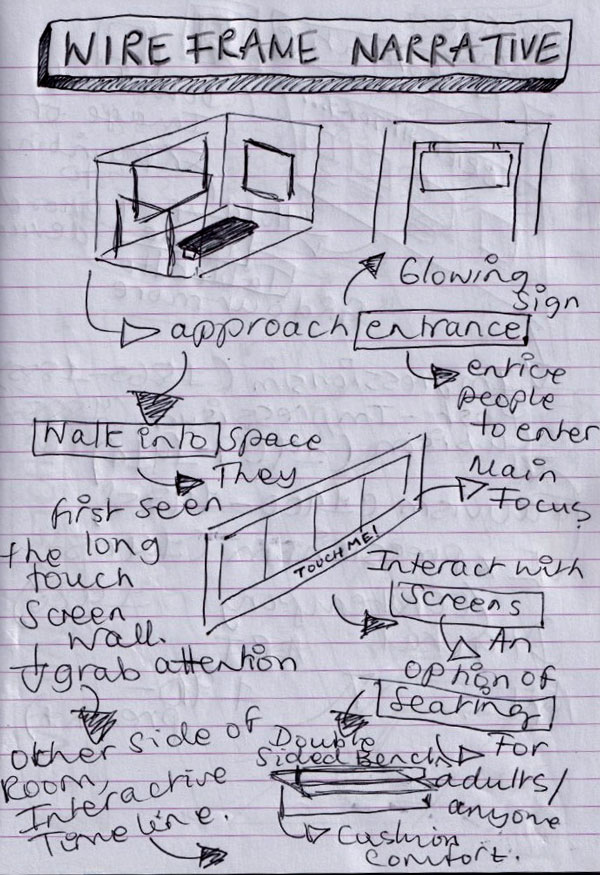 WIRE FRAME NARRATIVE
Glowing
sign
approach entrance
entice
people
to enter
Walk into space
They
first seen
the long
touch
screen
wall.
grab attention
Main
Focus
TOUCH ME!
Interact with
screens
An
option of
seating
For
adults/
anyone
Double
Sided Bench
Cushion
Comfort.
other side of
Room,
Interactive
Timeline.